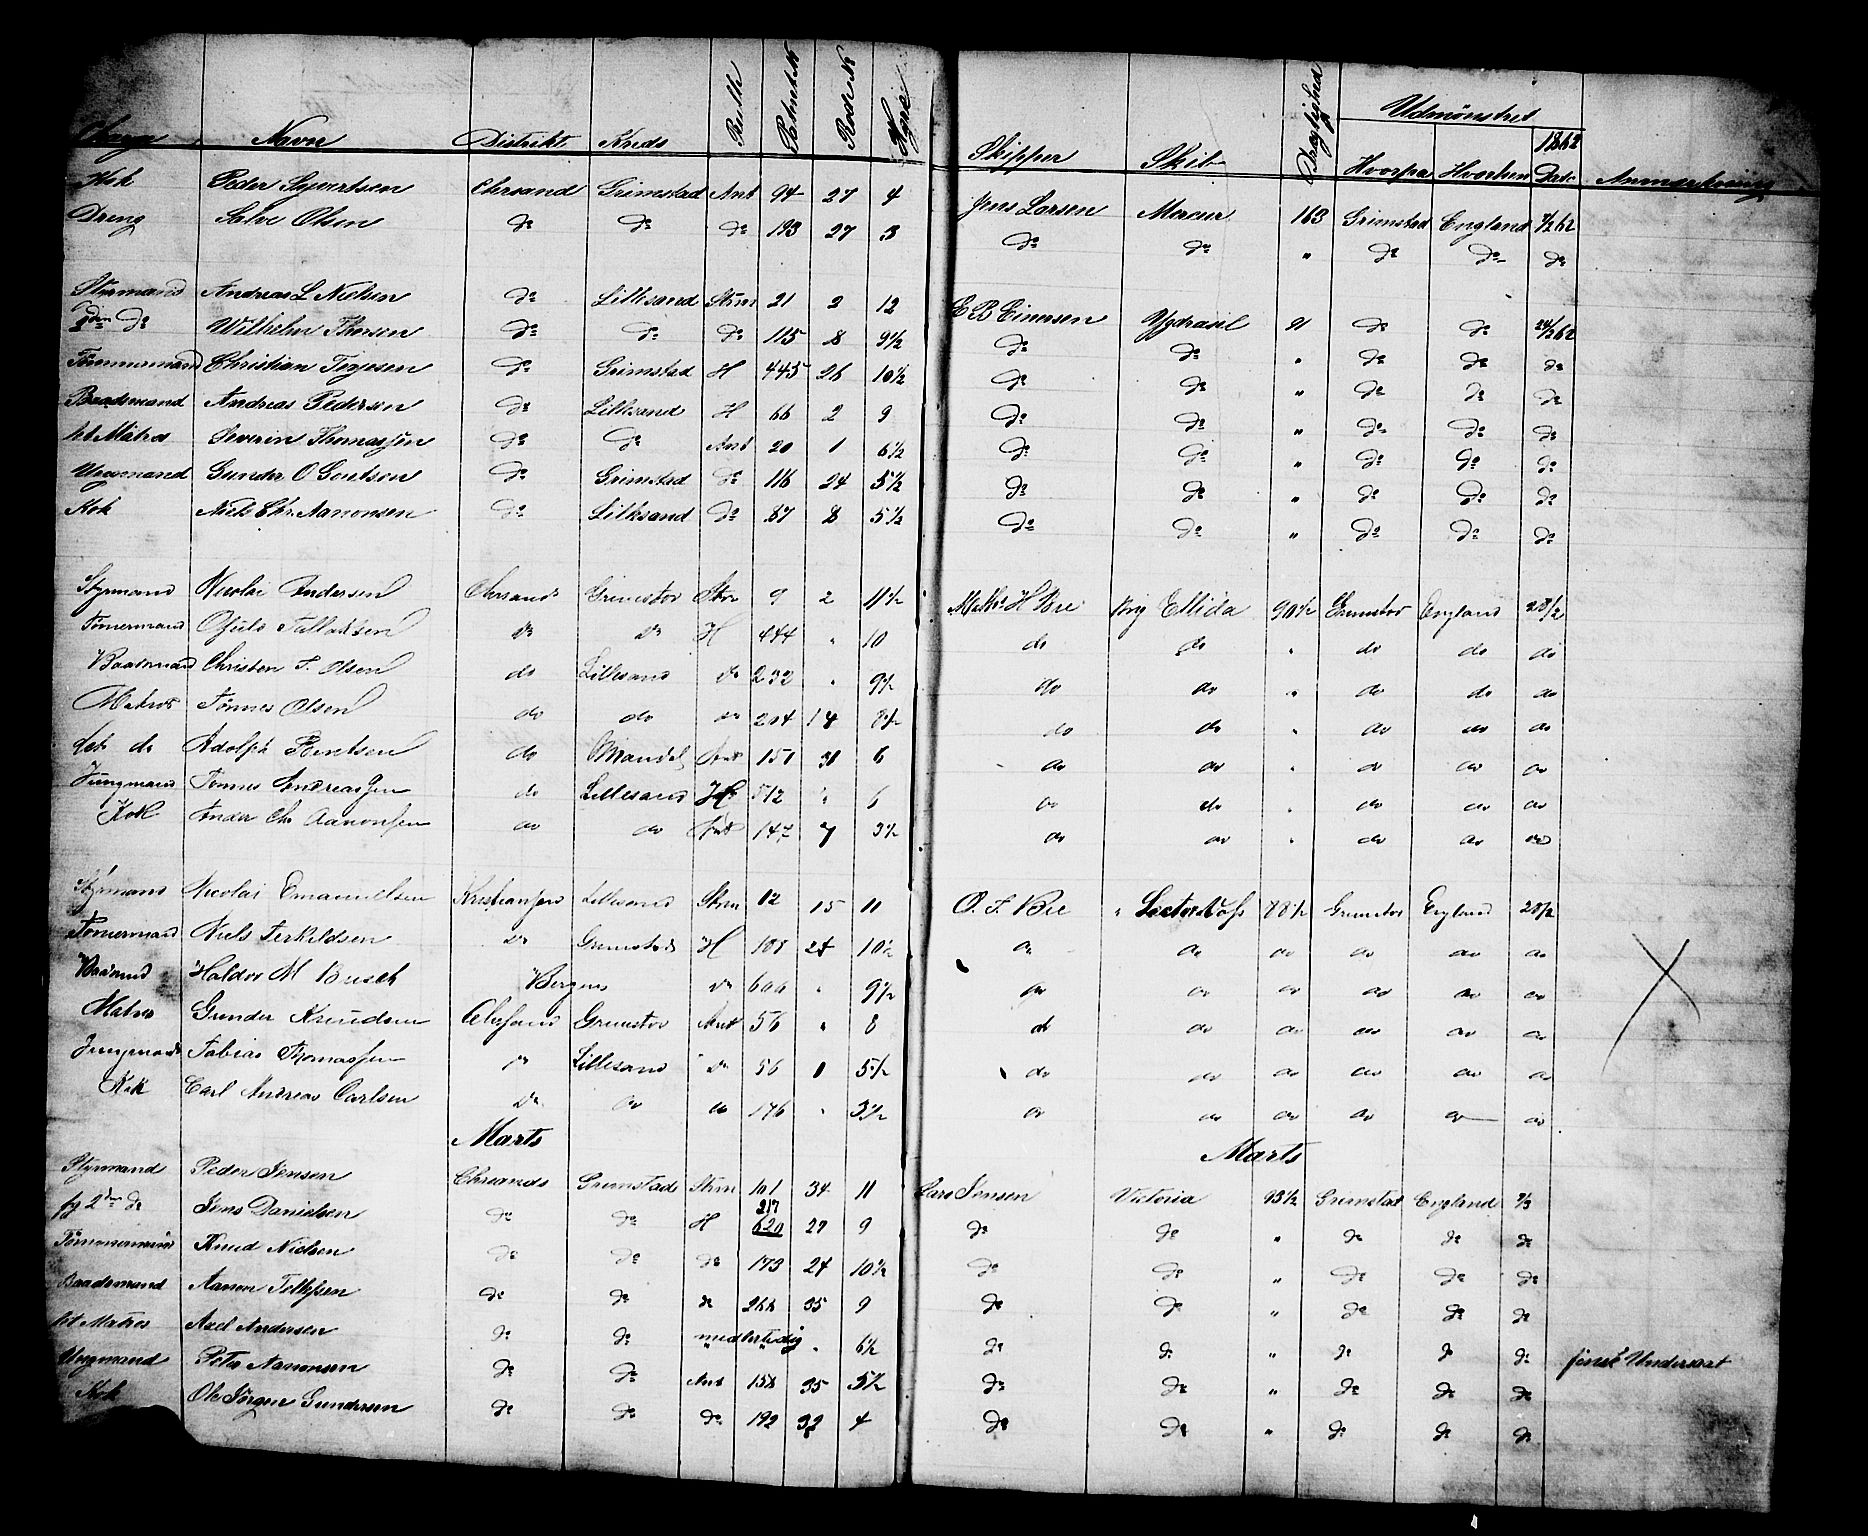 Navn Distrikt Kreds Rulle Patent № Rode № Hyre Skipper Skib Drægtighed Udmønstret Hvorfra Hvorhen 1862 Dato Anmærkning
Kok Peder Syvertsen Chrsand Grimstad Ant 94 27 4 Jens Larsen Mercur 163 Grimstad England 7/2 62
Dreng Salve Olsen do do do 193 27 3 do do " do do do
Styrmand Andreas L Nielsen do Lillesand Strm 21 2 12 E B Einersen Ygdrasil 91 do do 24/2 62
2den do Wilhelm Thorsen do do do 115 8 9½ do do " do do do
Tømmermand Christian Terjesen do Grimstad H 445 26 10½ do do " do do do
Baadsmand Andreas Pedersen do Lillesand H 66 2 9 do do " do do do
let Matros Severin Thomassen do do Ant 20 1 6½ do do " do do do
Ungmand Gunder O do Grimstad do 116 24 5½ do do " do do do
Kok Niels Chr. Aanonsen do Lillesand do 87 8 5½ do do " do do do
Styrmand Nicolai Andersen Chrsand Grimstad Strm 9 2 11½ H Bie Brig Ellida 90½ Grimstad England 28/2
Tømermand do do H 444 " 10 do do " do do do
Baadsmand Christen T. Olsen do Lillesand do 232 " 9½ do do " do do do
Matros Tønnes Olsen do do do 204 14 8½ do do " do do do
let do Adolph Berntsen do Mandal Ant 151 31 6 do do " do do do
Jungmand Tønnes Andreassen do Lillesand H 512 " 6 do do " do do do
Kok Chr Aanonsen do do Ant 147 7 3½ do do " do do do
Styrmand Nicolai Emanuelsen Lillesand Strm 12 15 11 O. T. Bie " 88½ Grimstad England 28/2
Tømermand Niels Terkildsen do Grimstad H 108 24 10½ do do do do do do
Haldor M Brisch Bergens do 600 " 9½ do do do do do do
Matros Gunder Knudsen Grimstad Ant 56 " 8 do do do do do do
Jungmand Tobias Thomassen do Lillesand do 56 1 5½ do do do do do do
Kok Carl Andreas Carlsen do do do 176 " 3½ do do do do do do
Marts Marts
Styrmand Peder Jensen Chrsands Grimstad Strm 101 34 11 Lars Jensen Victoria 93½ Grimstad England 7/3
fg 2den do Jens Danielsen do do H 217 620 27 9 do do " do do do
Tømmermand Knud Nielsen do do do 173 24 10½ do do " do do do
Baadsmand Aanon Tellefsen do do do 268 35 9 do do " do do do
let Matros Axel Andersen do do midlertidig " 6½ do do " do do do finsk Undersaat
Ungmand Peter Aanonsen do do Ant 158 35 5½ do do " do do do
Kok Ole Jørgen Gundersen do do do 192 32 4 do do " do do do